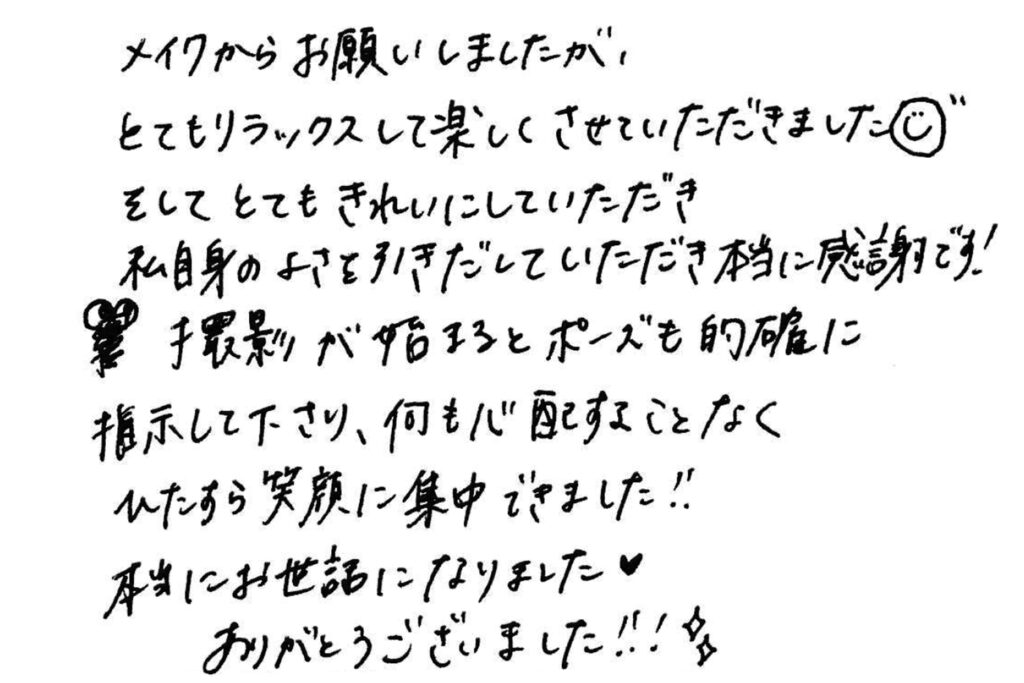 メイクからお願いしましたが、
とてもリラックスして楽しくさせていただきました
そしてとてもきれいにしていただき
私自身のよさを引きだしていただき本当に感謝です!
撮影が始まるとポーズも的確に
指示して下さり、何も心配することなく
ひたすら笑顔に集中できました!!
本当にお世話になりました♥
ありがとうございました!!!